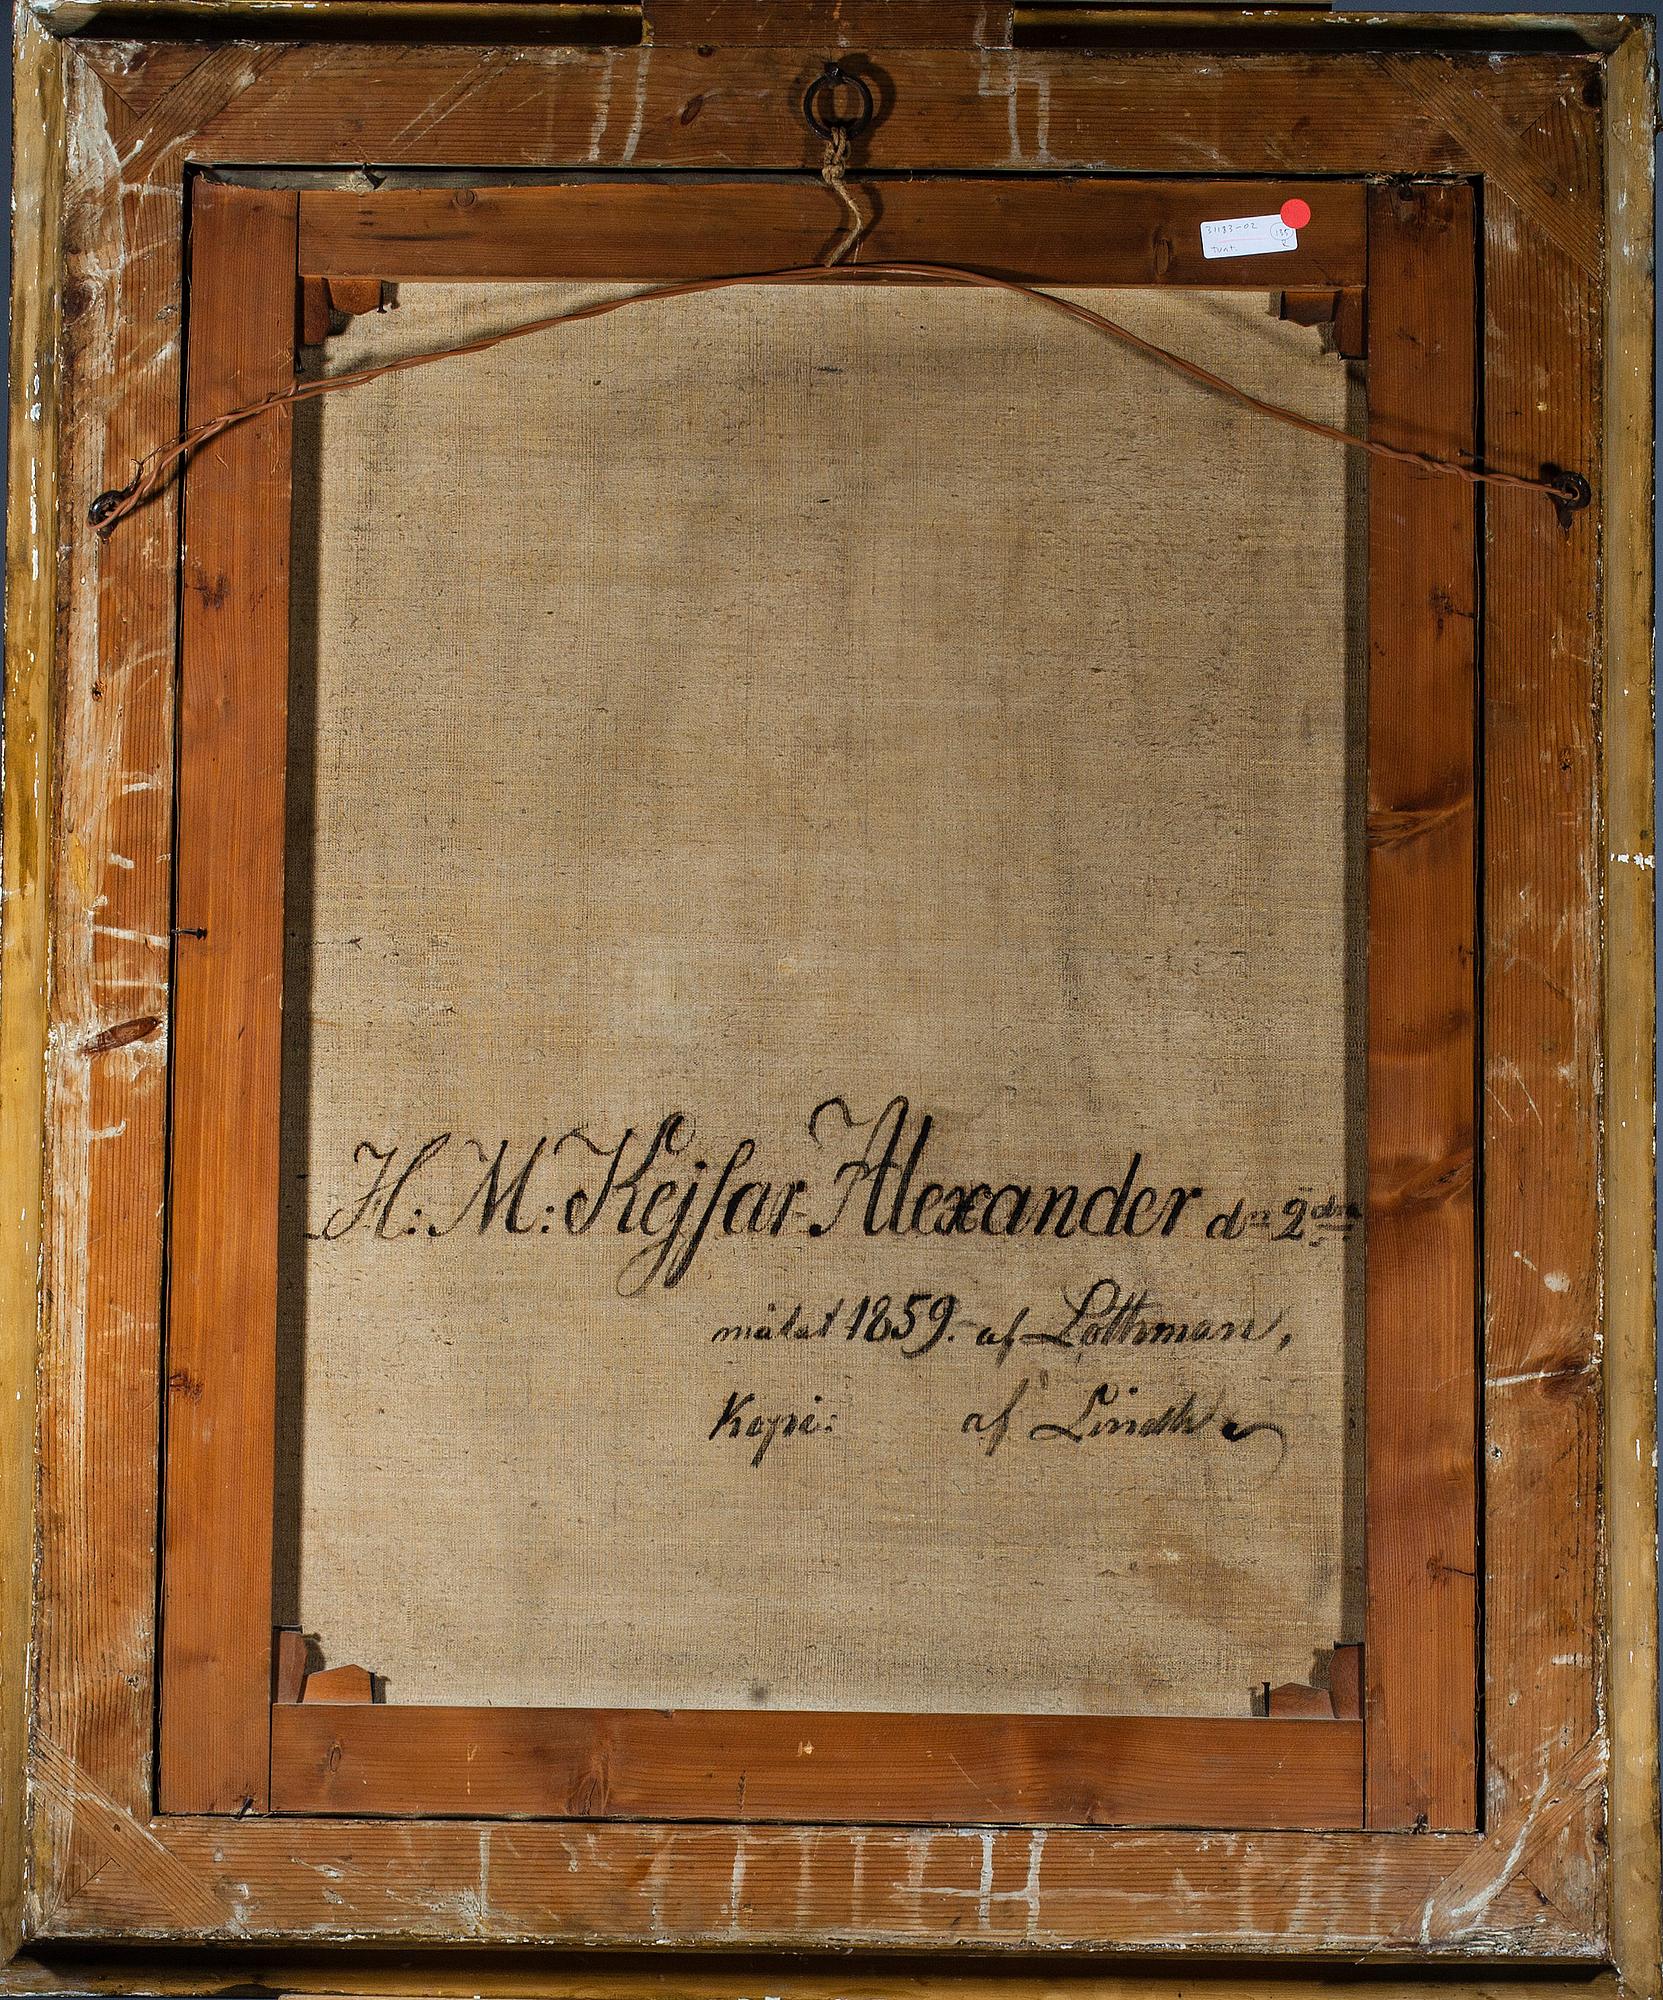 31183-02 135
tunt. R
H: M: Kejsar Alexander dn 2dra
målat 1859. af Lothman,
Kopie: af Lindh